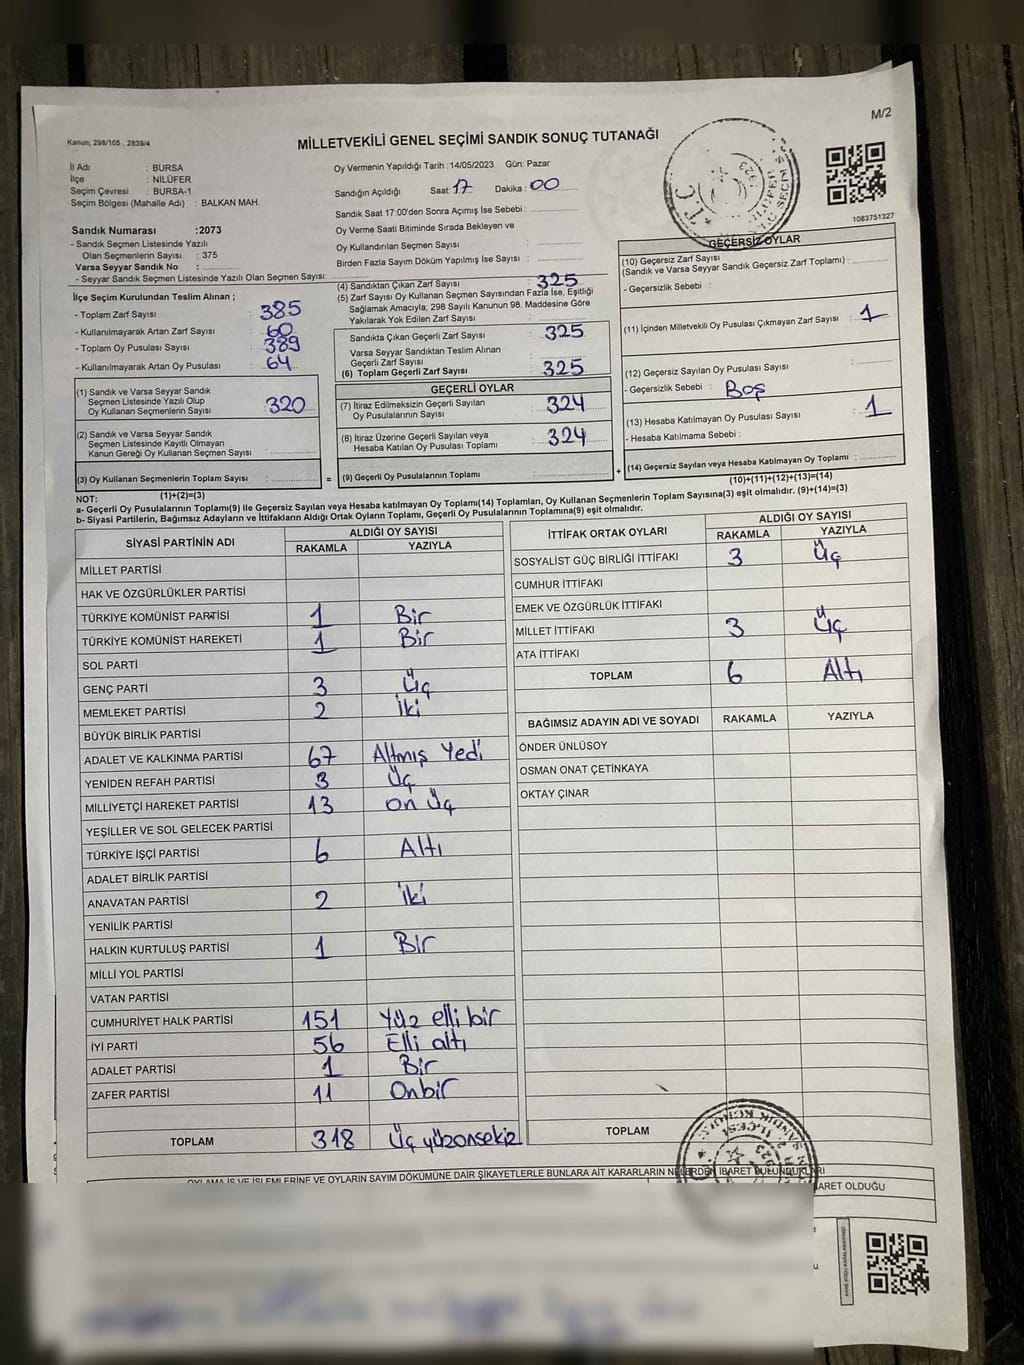 M/2
Kanun, 298/105 , 2839/4
MİLLETVEKİLİ GENEL SEÇİMİ SANDIK SONUÇ TUTANAĞI
İl Adı : BURSA
İlçe : NİLÜFER
Seçim Çevresi : BURSA-1
Seçim Bölgesi (Mahalle Adı) : BALKAN MAH.
Sandık Numarası :2073
- Sandık Seçmen Listesinde Yazılı
Olan Seçmenlerin Sayısı : 375
Varsa Seyyar Sandık No :
- Seyyar Sandık Seçmen Listesinde Yazılı Olan Seçmen Sayısı:
Oy Vermenin Yapıldığı Tarih :14/05/2023 Gün: Pazar
Sandığın Açıldığı Saat: 17 Dakika : 00
Sandık Saat 17:00'den Sonra Açımış İse Sebebi :
Oy Verme Saati Bitiminde Sırada Bekleyen ve
Oy Kullandırılan Seçmen Sayısı :
Birden Fazla Sayım Döküm Yapılmış İse Sayısı :
1083751327
İlçe Seçim Kurulundan Teslim Alınan ;
- Toplam Zarf Sayısı : 385
- Kullanılmayarak Artan Zarf Sayısı : 60
- Toplam Oy Pusulası Sayısı : 389
- Kullanılmayarak Artan Oy Pusulası : 64
(1) Sandık ve Varsa Seyyar Sandık
Seçmen Listesinde Yazılı Olup
Oy Kullanan Seçmenlerin Sayısı : 320
(2) Sandık ve Varsa Seyyar Sandık
Seçmen Listesinde Kayıtlı Olmayan
Kanun Gereği Oy Kullanan Seçmen Sayısı :
(3) Oy Kullanan Seçmenlerin Toplam Sayısı :
(1)+(2)=(3)
(4) Sandıktan Çıkan Zarf Sayısı : 325
(5) Zarf Sayısı Oy Kullanan Seçmen Sayısından Fazla İse, Eşitliği
Sağlamak Amacıyla, 298 Sayılı Kanunun 98. Maddesine Göre
Yakılarak Yok Edilen Zarf Sayısı :
Sandıkta Çıkan Geçerli Zarf Sayısı : 325
Varsa Seyyar Sandıktan Teslim Alınan
Geçerli Zarf Sayısı :
(6) Toplam Geçerli Zarf Sayısı : 325
GEÇERLİ OYLAR
(7) İtiraz Edilmeksizin Geçerli Sayılan
Oy Pusulalarının Sayısı : 324
(8) İtiraz Üzerine Geçerli Sayılan veya
Hesaba Katılan Oy Pusulası Toplamı : 324
= (9) Geçerli Oy Pusulalarının Toplamı : +
GEÇERSİZ OYLAR
(10) Geçersiz Zarf Sayısı
(Sandık ve Varsa Seyyar Sandık Geçersiz Zarf Toplamı) :
- Geçersizlik Sebebi :
(11) İçinden Milletvekili Oy Pusulası Çıkmayan Zarf Sayısı : 1
(12) Geçersiz Sayılan Oy Pusulası Sayısı :
- Geçersizlik Sebebi : Boş
(13) Hesaba Katılmayan Oy Pusulası Sayısı : 1
- Hesaba Katılmama Sebebi :
(14) Geçersiz Sayılan veya Hesaba Katılmayan Oy Toplamı :
(10)+(11)+(12)+(13)=(14)
NOT:
a- Geçerli Oy Pusulalarının Toplamı(9) ile Geçersiz Sayılan veya Hesaba katılmayan Oy Toplamı(14) Toplamları, Oy Kullanan Seçmenlerin Toplam Sayısına(3) eşit olmalıdır. (9)+(14)=(3)
b- Siyasi Partilerin, Bağımsız Adayların ve İttifakların Aldığı Ortak Oyların Toplamı, Geçerli Oy Pusulalarının Toplamına(9) eşit olmalıdır.
SİYASİ PARTİNİN ADI ALDIĞI OY SAYISI
RAKAMLA YAZIYLA
MİLLET PARTİSİ
HAK VE ÖZGÜRLÜKLER PARTİSİ
TÜRKİYE KOMÜNİST PARTİSİ 1 Bir
TÜRKİYE KOMÜNİST HAREKETİ 1 Bir
SOL PARTİ
GENÇ PARTİ 3 Üç
MEMLEKET PARTİSİ 2 İki
BÜYÜK BİRLİK PARTİSİ
ADALET VE KALKINMA PARTİSİ 67 Altmış Yedi
YENİDEN REFAH PARTİSİ 3 Üç
MİLLİYETÇİ HAREKET PARTİSİ 13 on Üç
YEŞİLLER VE SOL GELECEK PARTİSİ
TÜRKİYE İŞÇİ PARTİSİ 6 Altı
ADALET BİRLİK PARTİSİ
ANAVATAN PARTİSİ 2 İki
YENİLİK PARTİSİ
HALKIN KURTULUŞ PARTİSİ 1 Bir
MİLLİ YOL PARTİSİ
VATAN PARTİSİ
CUMHURİYET HALK PARTİSİ 151 Yüz elli bir
İYİ PARTİ 56 Elli altı
ADALET PARTİSİ 1 Bir
ZAFER PARTİSİ 11 Onbir
TOPLAM 318 Üç yüzonsekiz
İTTİFAK ORTAK OYLARI ALDIĞI OY SAYISI
RAKAMLA YAZIYLA
SOSYALİST GÜÇ BİRLİĞİ İTTİFAKI 3 Üç
CUMHUR İTTİFAKI
EMEK VE ÖZGÜRLÜK İTTİFAKI
MİLLET İTTİFAKI 3 Üç
ATA İTTİFAKI
TOPLAM 6 Altı
BAĞIMSIZ ADAYIN ADI VE SOYADI RAKAMLA YAZIYLA
ÖNDER ÜNLÜSOY
OSMAN ONAT ÇETİNKAYA
OKTAY ÇINAR
TOPLAM
OYLAMA İŞ VE İŞLEMLERİNE VE OYLARIN SAYIM DÖKÜMÜNE DAİR ŞİKAYETLERLE BUNLARA AİT KARARLARIN NELERDEN İBARET BULUNDUKLARI
ARET OLDUĞU